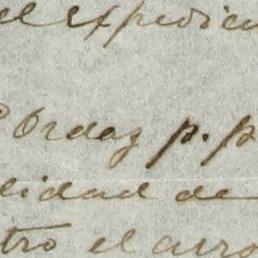 el expedien
Ordaz p. p
lidad de
tro el arro